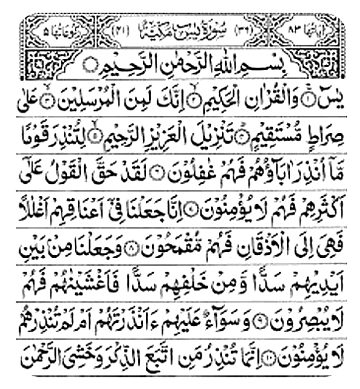 اٰیَاتُهَا ۸۳ (۳۶) سُوْرَةُ یٰسٓ مَكِّیَّةٌ (۴۱) رُكُوْعَاتُهَا ۵
بِسْمِ اللّٰهِ الرَّحْمٰنِ الرَّحِیْمِ
یٰسٓ ۱ وَالْقُرْاٰنِ الْحَكِیْمِ ۲ اِنَّكَ لَمِنَ الْمُرْسَلِیْنَ ۳ عَلٰی
صِرَاطٍ مُّسْتَقِیْمٍ ۴ تَنْزِیْلَ الْعَزِیْزِ الرَّحِیْمِ ۵ لِتُنْذِرَ قَوْمًا
مَّاۤ اُنْذِرَ اٰبَآؤُهُمْ فَهُمْ غٰفِلُوْنَ ۶ لَقَدْ حَقَّ الْقَوْلُ عَلٰۤی
اَكْثَرِهِمْ فَهُمْ لَا یُؤْمِنُوْنَ ۷ اِنَّا جَعَلْنَا فِیْۤ اَعْنَاقِهِمْ اَغْلٰلًا
فَهِیَ اِلَی الْاَذْقَانِ فَهُمْ مُّقْمَحُوْنَ ۸ وَجَعَلْنَا مِنْۢ بَیْنِ
اَیْدِیْهِمْ سَدًّا وَّمِنْ خَلْفِهِمْ سَدًّا فَاَغْشَیْنٰهُمْ فَهُمْ
لَا یُبْصِرُوْنَ ۹ وَسَوَآءٌ عَلَیْهِمْ ءَاَنْذَرْتَهُمْ اَمْ لَمْ تُنْذِرْهُمْ
لَا یُؤْمِنُوْنَ ۱۰ اِنَّمَا تُنْذِرُ مَنِ اتَّبَعَ الذِّكْرَ وَخَشِیَ الرَّحْمٰنَ